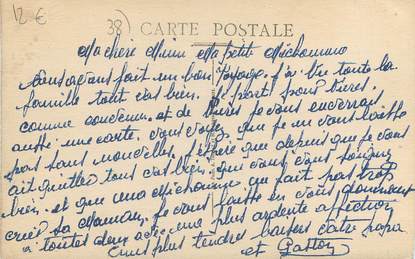 12 €
38) CARTE POSTALE
Ma chère Mimi Ma petite Michounine
Nous avons fait un bon voyage. J'ai vu toute la
famille tout va bien. Je parts pour
comme convenu. et de je vous enverrai
aussi une carte. vous voyez que je ne vous laisse
pas sans nouvelles. J'espère que depuis que je vous
ai quitter tout va bien, que vous vous soignez
bien. et que ma Michounine ne fait pas trop
crier sa Maman. Je vous quitte en vous donnant
à toutes deux avec ma plus ardente affection
mes plus tendres baisers votre papa
et Gaston